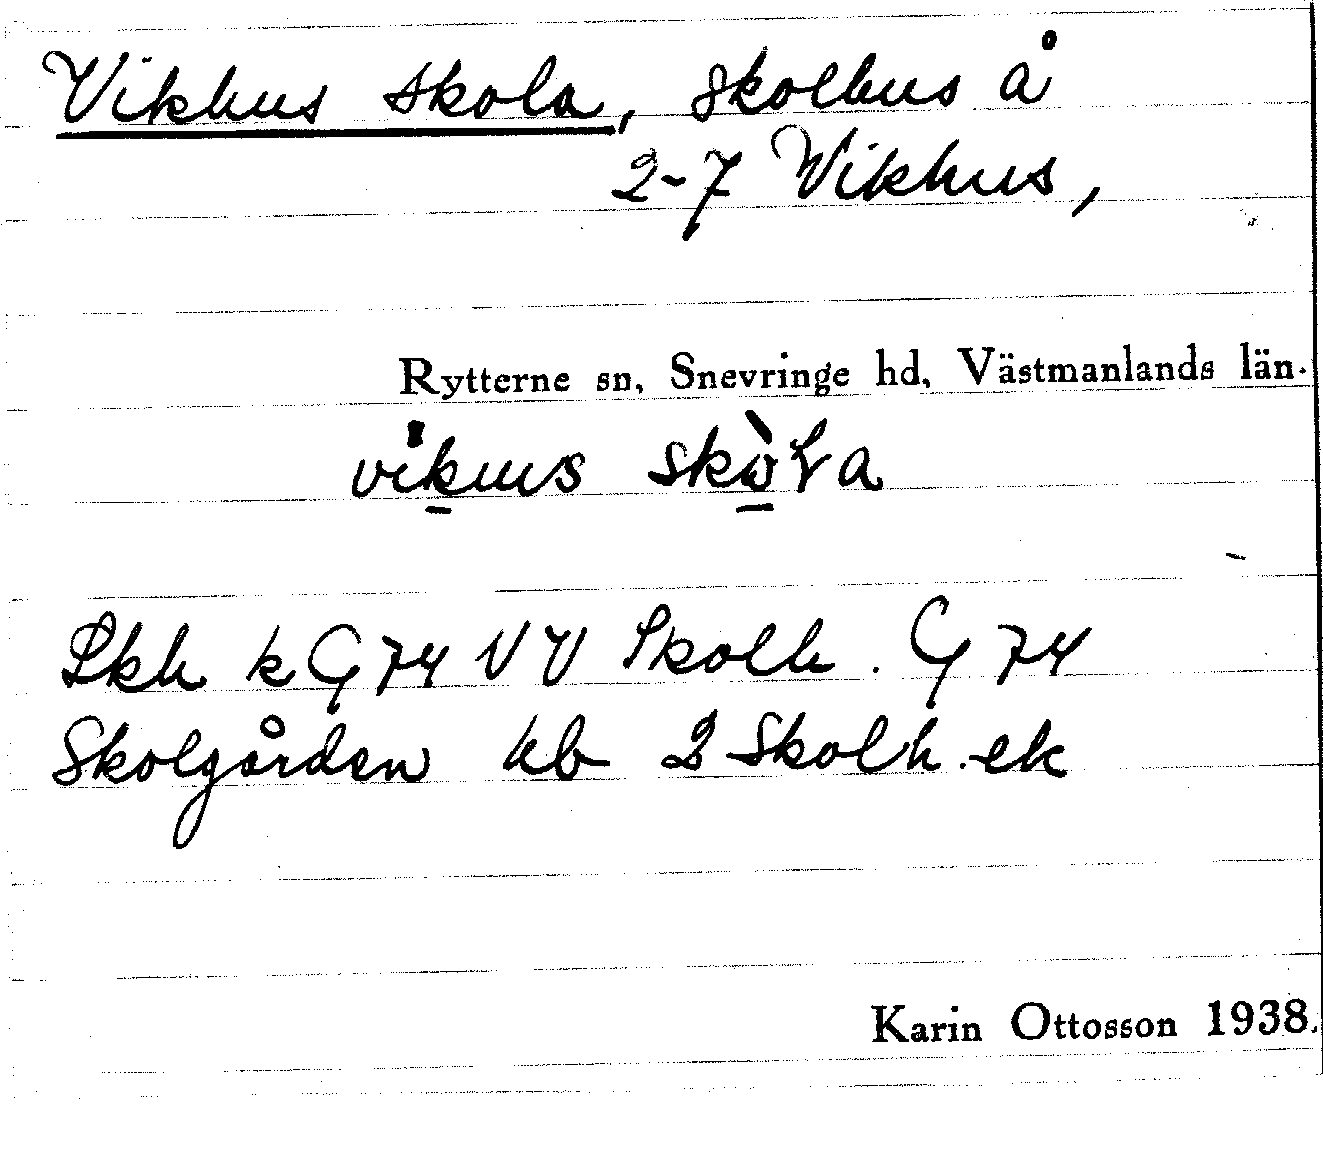 Vikhus skola, skolhus å
2-7 Vikhus,
Rytterne sn, Snevringe hd, Västmanlands län.
vikus skòla
Skh k G 74 VV Skolh. G 74
Skolgården hb 2 Skolh. ek
Karin Ottosson 1938.